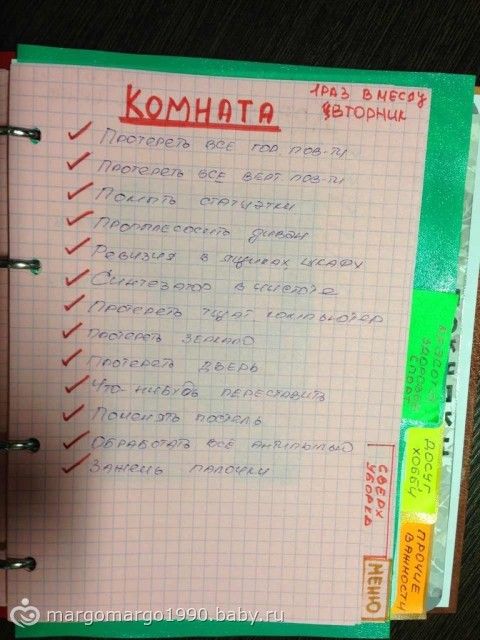 КОМНАТА
1 РАЗ В МЕСЯЦ
ВТОРНИК
ПРОТЕРЕТЬ ВСЕ ГОР. ПОВ-ТИ
ПРОТЕРЕТЬ ВСЕ ВЕРТ. ПОВ-ТИ
ПОМЫТЬ СТАТУЭТКИ
ПРОПЫЛЕСОСИТЬ ДИВАН
РЕВИЗИЯ В ЯЩИКАХ, ШКАФУ
СИНТЕЗАТОР В ЧИСТОТЕ
ПРОТЕРЕТЬ ТЩАТ. КОМПЬЮТЕР
ПРОТЕРЕТЬ ЗЕРКАЛО
ПРОТЕРЕТЬ ДВЕРЬ
ЧТО-НИБУДЬ ПЕРЕСТАВИТЬ
ПОМЕНЯТЬ ПОСТЕЛЬ
ОБРАБОТАТЬ ВСЕ АНТИПЫЛЬЮ
ЗАЖЕЧЬ ПАЛОЧКИ
КРАСОТА
ЗДОРОВЬЕ
СПОРТ
ДОСУГ,
ХОББИ
ПРОЧИЕ
ВАЖНОСТИ
СВЕРХ
УБОРКА
МЕНЮ
margomargo1990.baby.ru